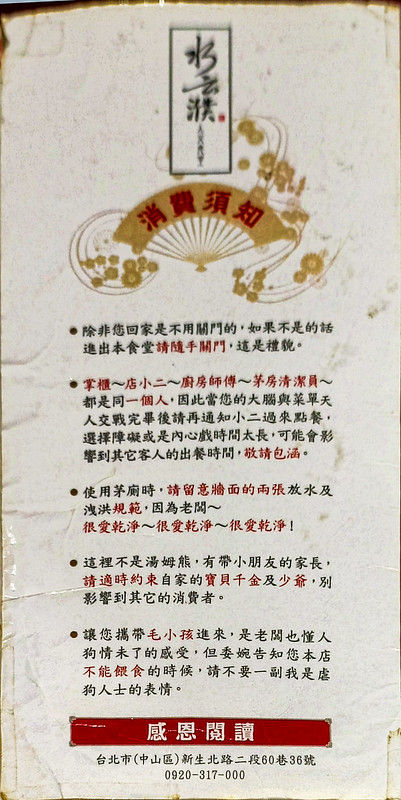 水云濮
消費須知
● 除非您回家是不用關門的，如果不是的話
進出本食堂請隨手關門，這是禮貌。
● 掌櫃～店小二～廚房師傅～茅房清潔員～
都是同一個人，因此當您的大腦與菜單天
人交戰完畢後請再通知小二過來點餐，
選擇障礙或是內心戲時間太長，可能會影
響到其它客人的出餐時間，敬請包涵。
● 使用茅廁時，請留意牆面的兩張放水及
洩洪規範，因為老闆～
很愛乾淨～很愛乾淨～很愛乾淨！
● 這裡不是湯姆熊，有帶小朋友的家長，
請適時約束自家的寶貝千金及少爺，別
影響到其它的消費者。
● 讓您攜帶毛小孩進來，是老闆也懂人
狗情未了的感受，但委婉告知您本店
不能餵食的時候，請不要一副我是虐
狗人士的表情。
感恩閱讀
台北市(中山區)新生北路二段60巷36號
0920-317-000